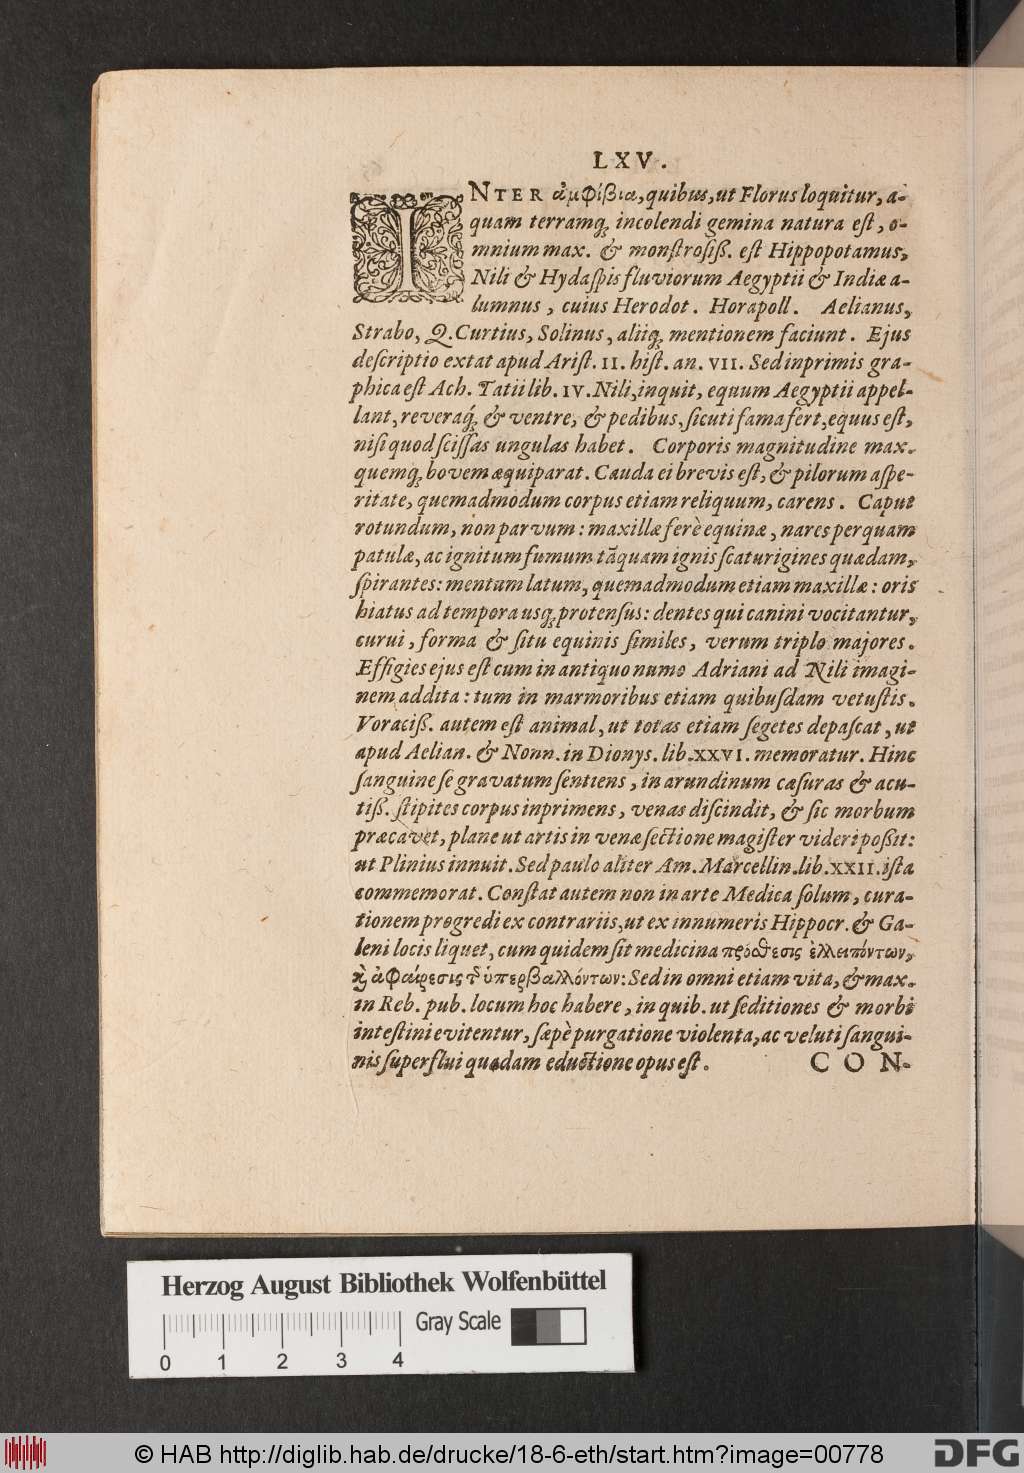 LXV.
INTER ἀμφίβια, quibus, ut Florus loquitur, a-
quam terramq; incolendi gemina natura eſt, o-
mnium max. & monſtroſiß. eſt Hippopotamus,
Nili & Hydaſpis fluviorum Aegyptii & Indiæ a-
lumnus, cuius Herodot. Horapoll. Aelianus,
Strabo, Q. Curtius, Solinus, aliiq; mentionem faciunt. Ejus
deſcriptio extat apud Ariſt. II. hiſt. an. VII. Sed inprimis gra-
phica eſt Ach. Tatii lib. IV. Nili, inquit, equum Aegyptii appel-
lant, reveraq́; & ventre, & pedibus, ſicuti fama fert, equus eſt,
niſi quod ſciſſas ungulas habet. Corporis magnitudine max.
quemq; bovem æquiparat. Cauda ei brevis eſt, & pilorum aſpe-
ritate, quemadmodum corpus etiam reliquum, carens. Caput
rotundum, non parvum: maxillæ ferè equinæ, nares perquam
patulæ, ac ignitum fumum tāquam ignis ſcaturigines quædam,
ſpirantes: mentum latum, quemadmodum etiam maxillæ: oris
hiatus ad tempora usq; protenſus: dentes qui canini vocitantur,
curui, forma & ſitu equinis ſimiles, verum triplo majores.
Effigies ejus eſt cum in antiquo numo Adriani ad Nili imagi-
nem addita: tum in marmoribus etiam quibuſdam vetuſtis.
Voraciß. autem eſt animal, ut totas etiam ſegetes depaſcat, ut
apud Aelian. & Nonn. in Dionys. lib. XXVI. memoratur. Hinc
ſanguine ſe gravatum ſentiens, in arundinum cæſuras & acu-
tiß. ſtipites corpus inprimens, venas diſcindit, & ſic morbum
præcavet, plane ut artis in venæ ſectione magiſter videri poßit:
ut Plinius innuit. Sed paulo aliter Am. Marcellin. lib. XXII. iſta
commemorat. Conſtat autem non in arte Medica ſolum, cura-
tionem progredi ex contrariis, ut ex innumeris Hippocr. & Ga-
leni locis liquet, cum quidem ſit medicina πρόσθεσις ἐλλειπόντων,
ϗ ἀφαίρεσις τῶν ὑπερβαλλόντων: Sed in omni etiam vita, & max.
in Reb. pub. locum hoc habere, in quib. ut ſeditiones & morbi
inteſtini evitentur, ſæpè purgatione violenta, ac veluti ſangui-
nis ſuperflui quadam eductione opus eſt. CON-
Herzog August Bibliothek Wolfenbüttel
Gray Scale
0 1 2 3 4
© HAB http://diglib.hab.de/drucke/18-6-eth/start.htm?image=00778
DFG